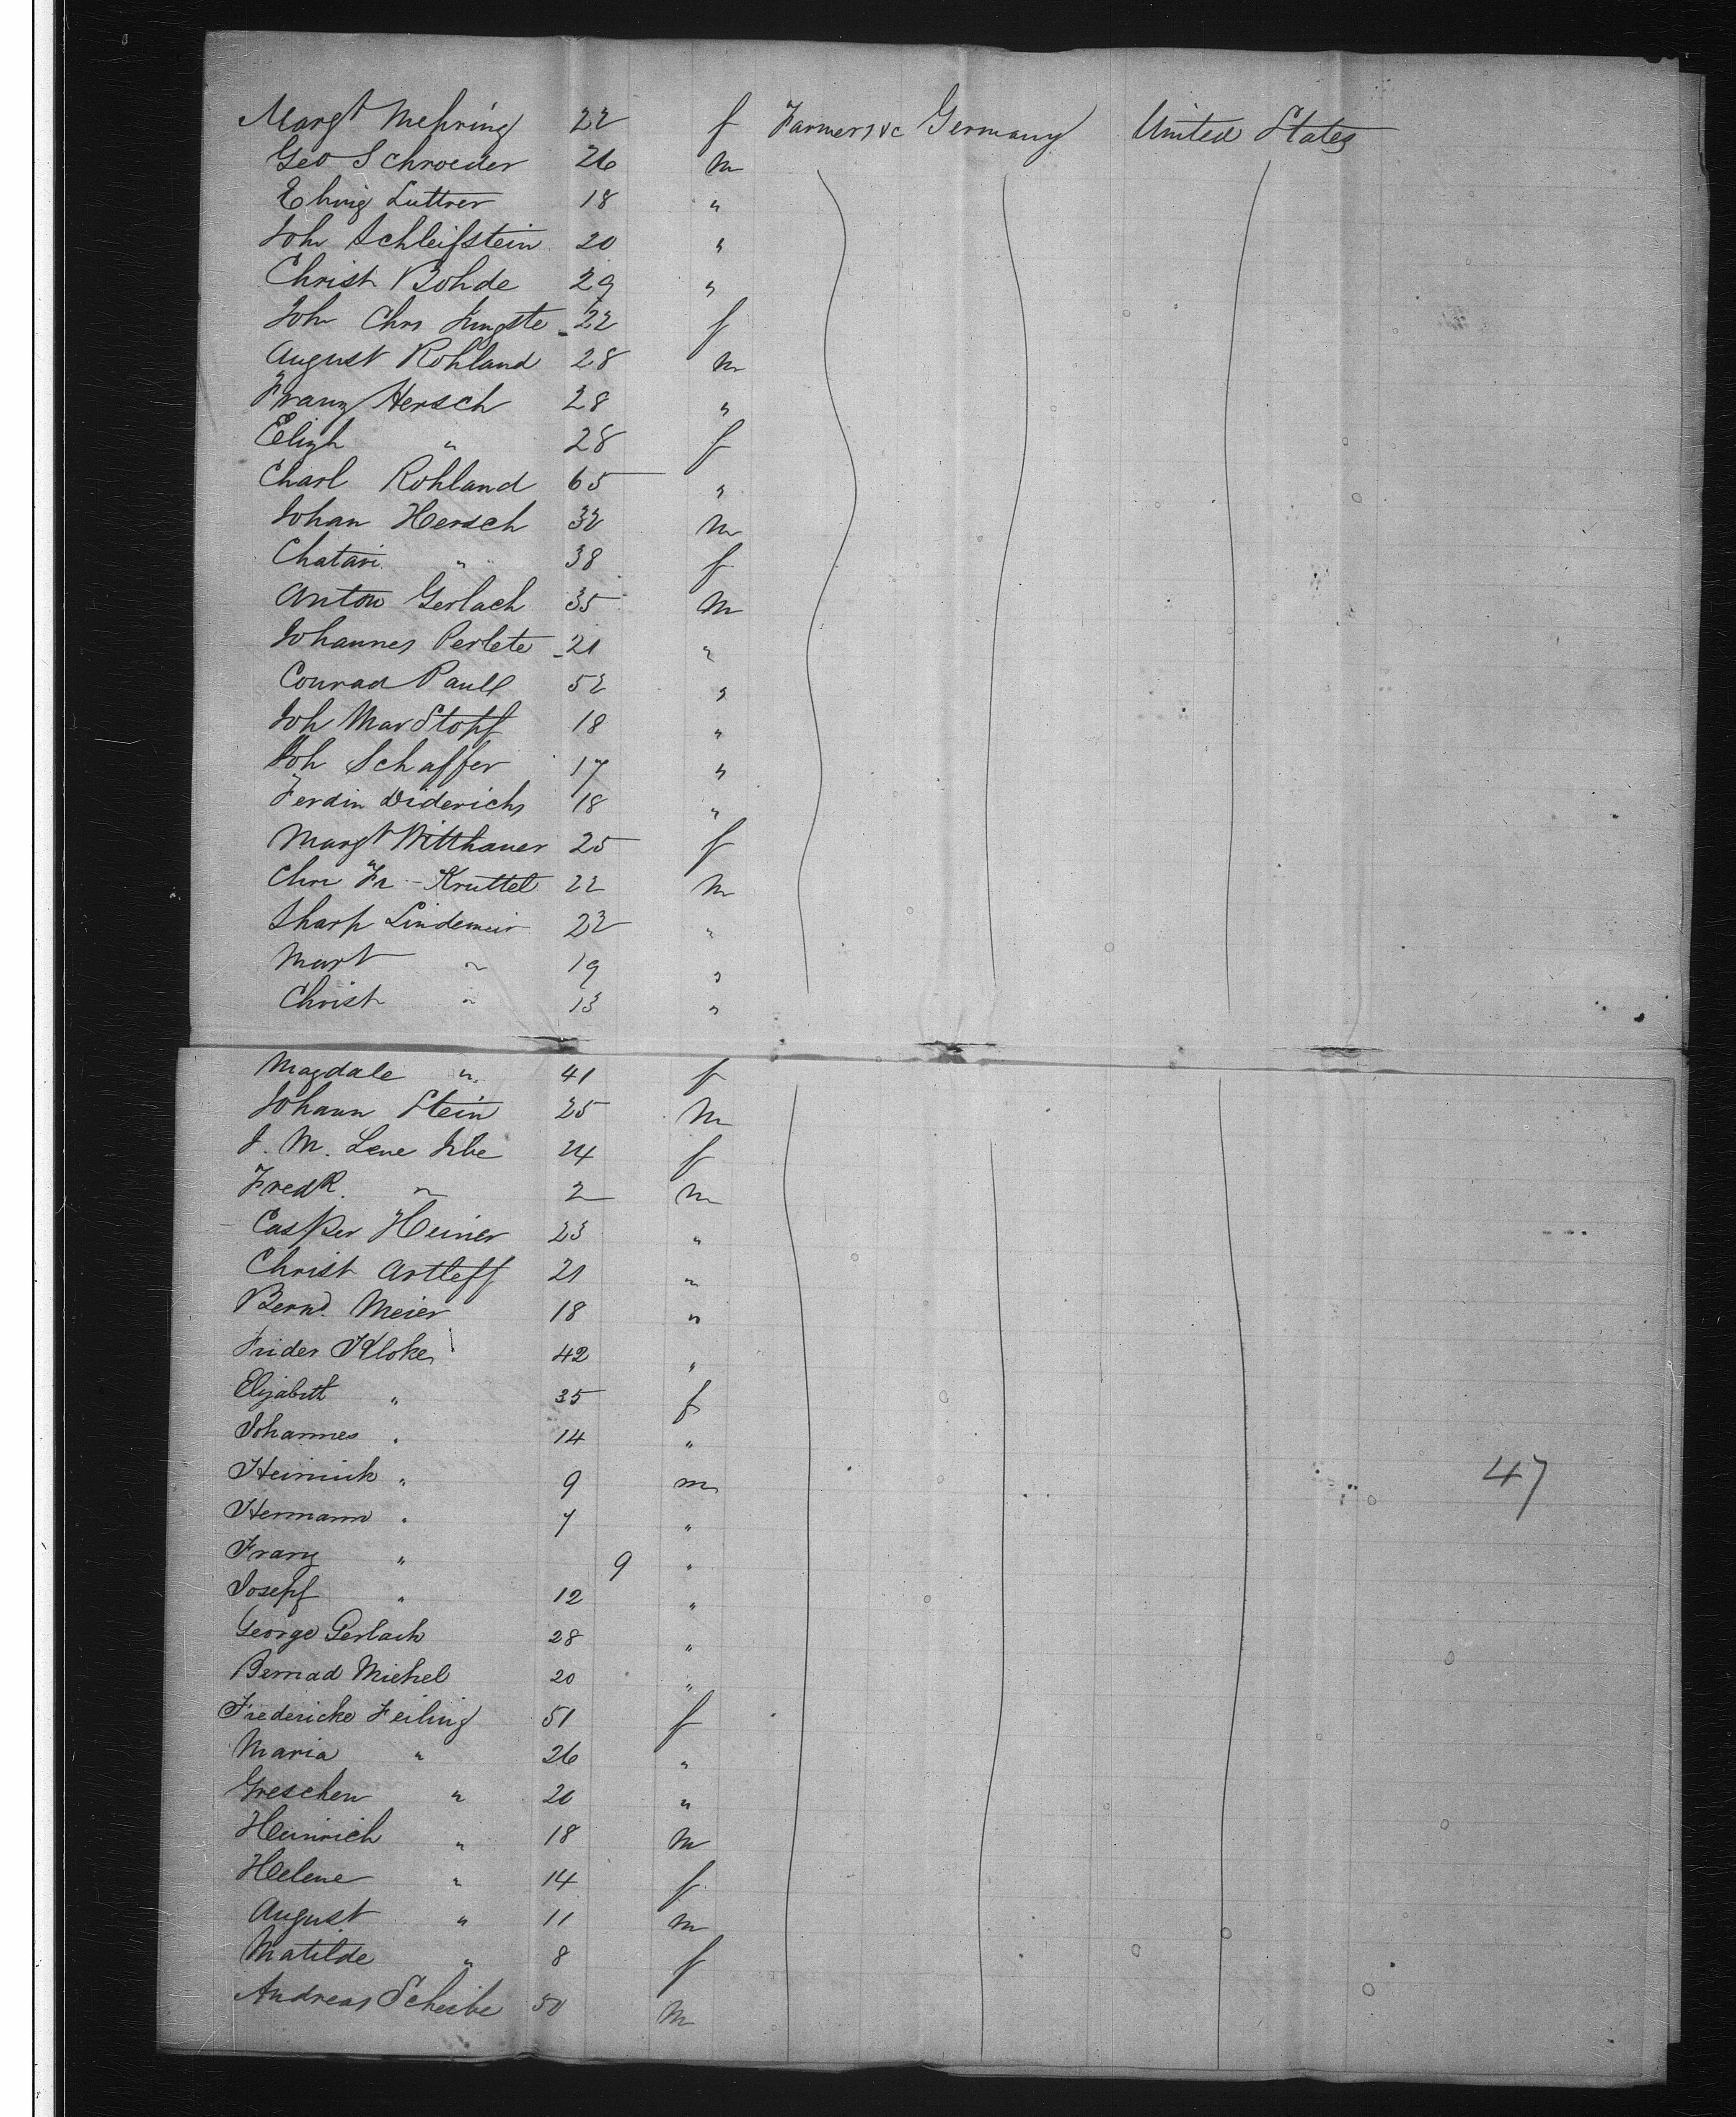 Margt Mehring 22 f Farmers &c Germany United States
Geo Schroeder 26 m
Luttrer 18 "
Joh Schleifstein 20 "
Christ Bohde 29 "
Joh Chrs Jungste 22 f
August Rohland 28 m
Franz Hersch 28 "
Elizh " 28 f
Charl Rohland 65 "
Johan Hersch 32 m
Chatari " 38 f
Anton Gerlach 35 m
Johannes Perlete 21 "
Conrad Paull 52 "
Joh Mar Stopf 18 "
Joh Schaffer 17 "
Ferdin Diderichs 18 "
Margt Witthauer 25 f
Chr Fr - Kruttel 22 m
Sharp Lindemeir 22 "
Mart " 19 "
Christ " 13 "
Magdale " 41 f
Johann Stein 25 m
J. M. Lene 24 f
Fredk. " 2 m
Casper Heiner 23 "
Christ Artleff 21 "
Bernd. Meier 18 "
Frider Kloke 42 "
Elizabett " 35 f
Johannes " 14 "
Heinrich " 9 m
47
Hermann " 7 "
Franz " 9 "
Josepf " 12 "
George Gerlach 28 "
Bernad Michel 20 "
Fredericke Feiling 51 f
Maria " 26 "
Greschen " 20 "
Heinrich " 18 m
Helene " 14 f
August " 11 m
Matilde " 8 f
Andreas Scheibe 50 m